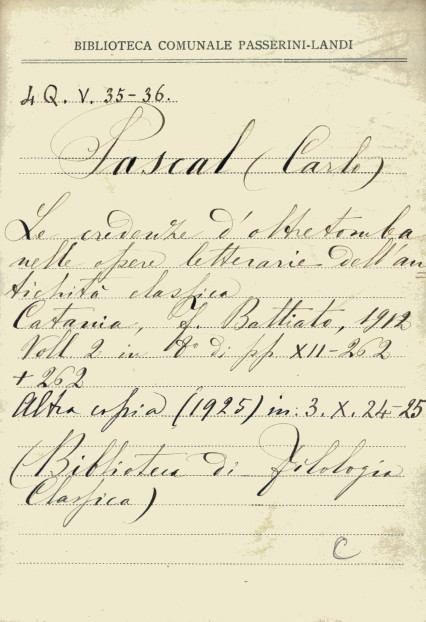 BIBLIOTECA COMUNALE PASSERINI-LANDI
4 Q. V. 35-36.
Pascal (Carlo)
Le credenze d'oltretomba
nelle opere letterarie dell'an
tichità classica
Catania, F. Battiato, 1912
Voll 2 in 8° di pp. XII-262
+ 262
Altra copia (1925) in: 3. X. 24-25
(Biblioteca di Filologia
Classica)
C